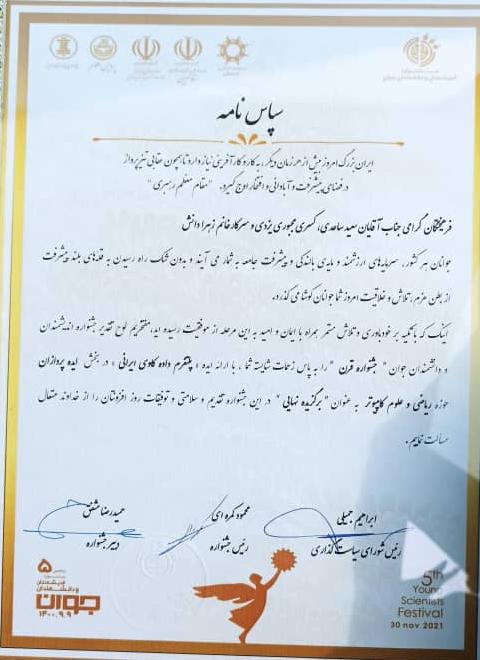 سپاس نامه
ایران بزرگ امروز بیش از هر زمان دیگر، به کار و کارآفرینی نیاز دارد تا همچون عقابی تیز پرواز
در فضای پیشرفت و آبادانی و افتخار اوج گیرد. "مقام معظم رهبری"
فرهیختگان گرامی جناب آقایان سعید ساعدی، کسری مجبوری یزدی و سرکار خانم زهرا دانش
جوانان هر کشور، سرمایه‌های ارزشمند و مایه‌ی بالندگی و پیشرفت جامعه به شمار می آیند و بدون شک راه رسیدن به قله‌های بلند پیشرفت
از بطن عزم، تلاش و خلاقیت امروز شما جوانان کوشا می گذرد.
اینک که با تکیه بر خودباوری و تلاش مستمر همراه با ایمان و امید به این مرحله از موفقیت رسیده اید، مفتخریم لوح تقدیر جشنواره اندیشمندان
و دانشمندان جوان " جشنواره قرن " را به پاس زحمات شایسته شما، با ارائه ایده « پلتفرم داده کاوی ایرانی » در بخش ایده پردازان
حوزه ریاضی و علوم کامپیوتر به عنوان " برگزیده نهایی " در این جشنواره تقدیم و سلامتی و توفیقات روز افزونتان را از خداوند متعال
مسالت نماییم.
ابراهیم جمیلی
رئیس شورای سیاست گذاری
محمود کمره ای
رئیس جشنواره
حمیدرضا شفق
دبیر جشنواره
۵
اندیشمندان
و دانشمندان
جوان
۱۴۰۰.۹.۹
5th
Young
Scientists
Festival
30 nov 2021